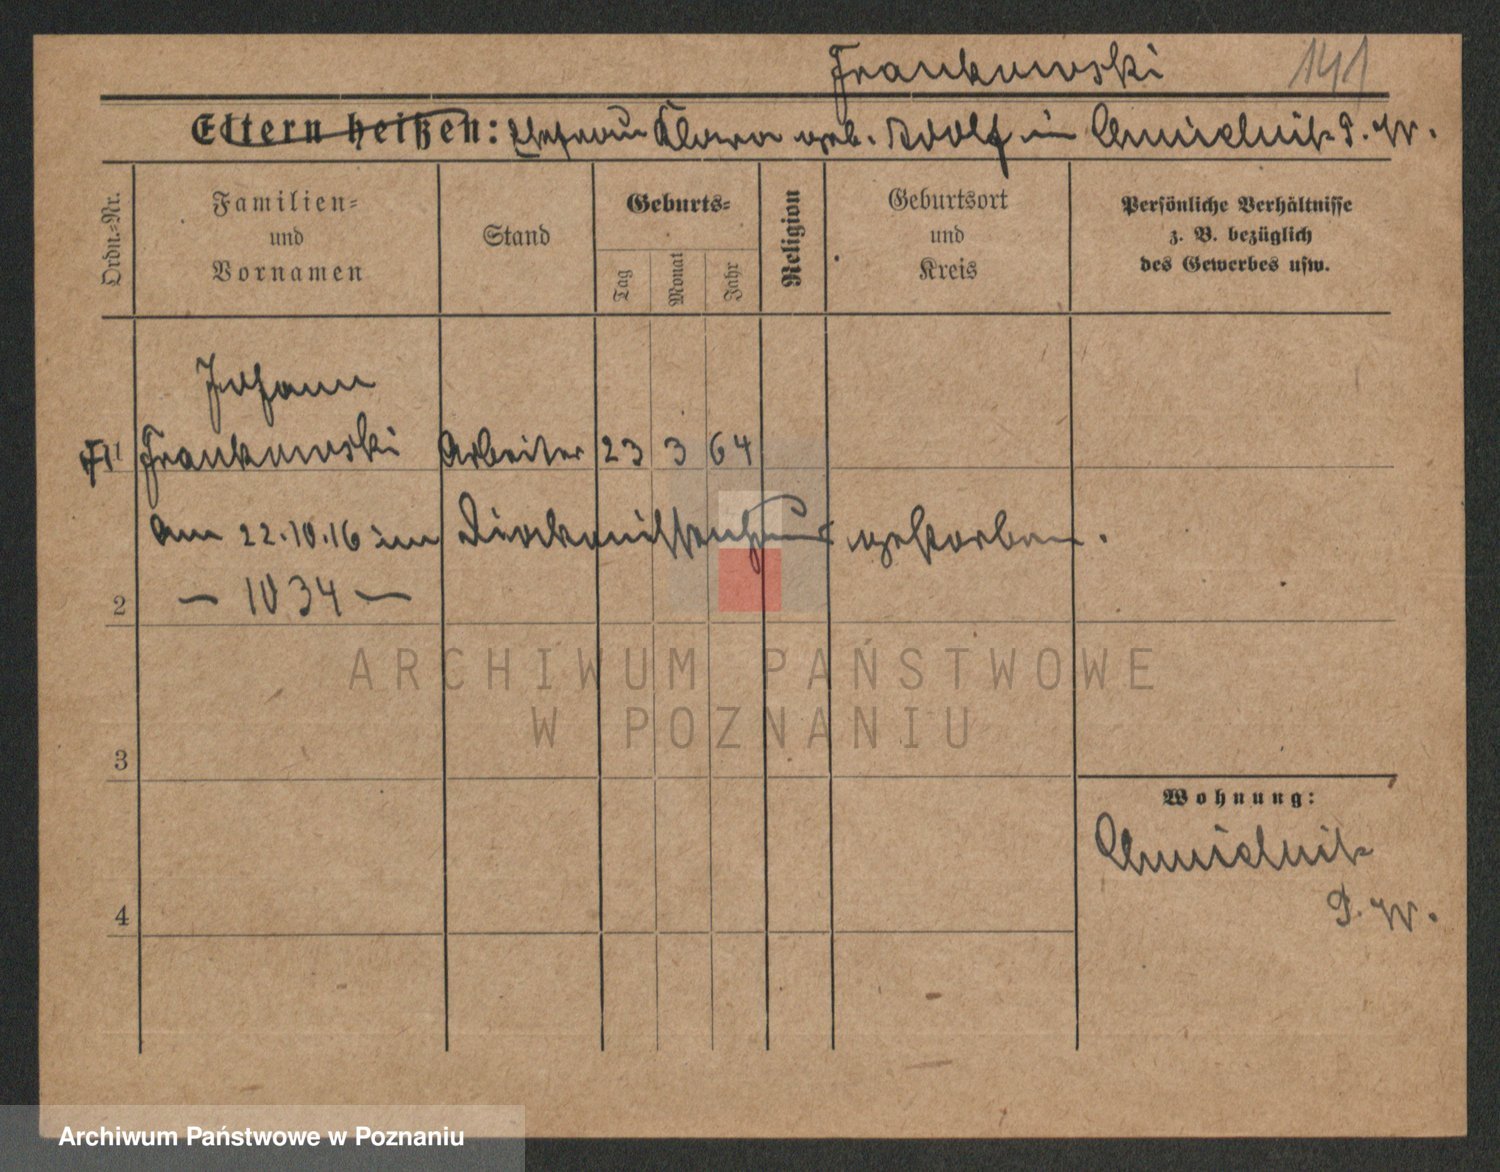 Frankowski 141
Eltern heißen: Ehefrau Klara geb. Adolf in Chwielnik P. W.
Ordn.-Nr.
Familien-
und
Vornamen
Stand
Geburts-
Tag
Monat
Jahr
Religion
Geburtsort
und
Kreis
Persönliche Verhältnisse
z. B. bezüglich
des Gewerbes usw.
Johann
1 Frankowski Arbeiter 23 3 64
am 22.10.16 im Diakonissenhaus gestorben.
2 — 1034 —
ARCHIWUM PAŃSTWOWE
W POZNANIU
3
Wohnung:
4
P. W.
Archiwum Państwowe w Poznaniu